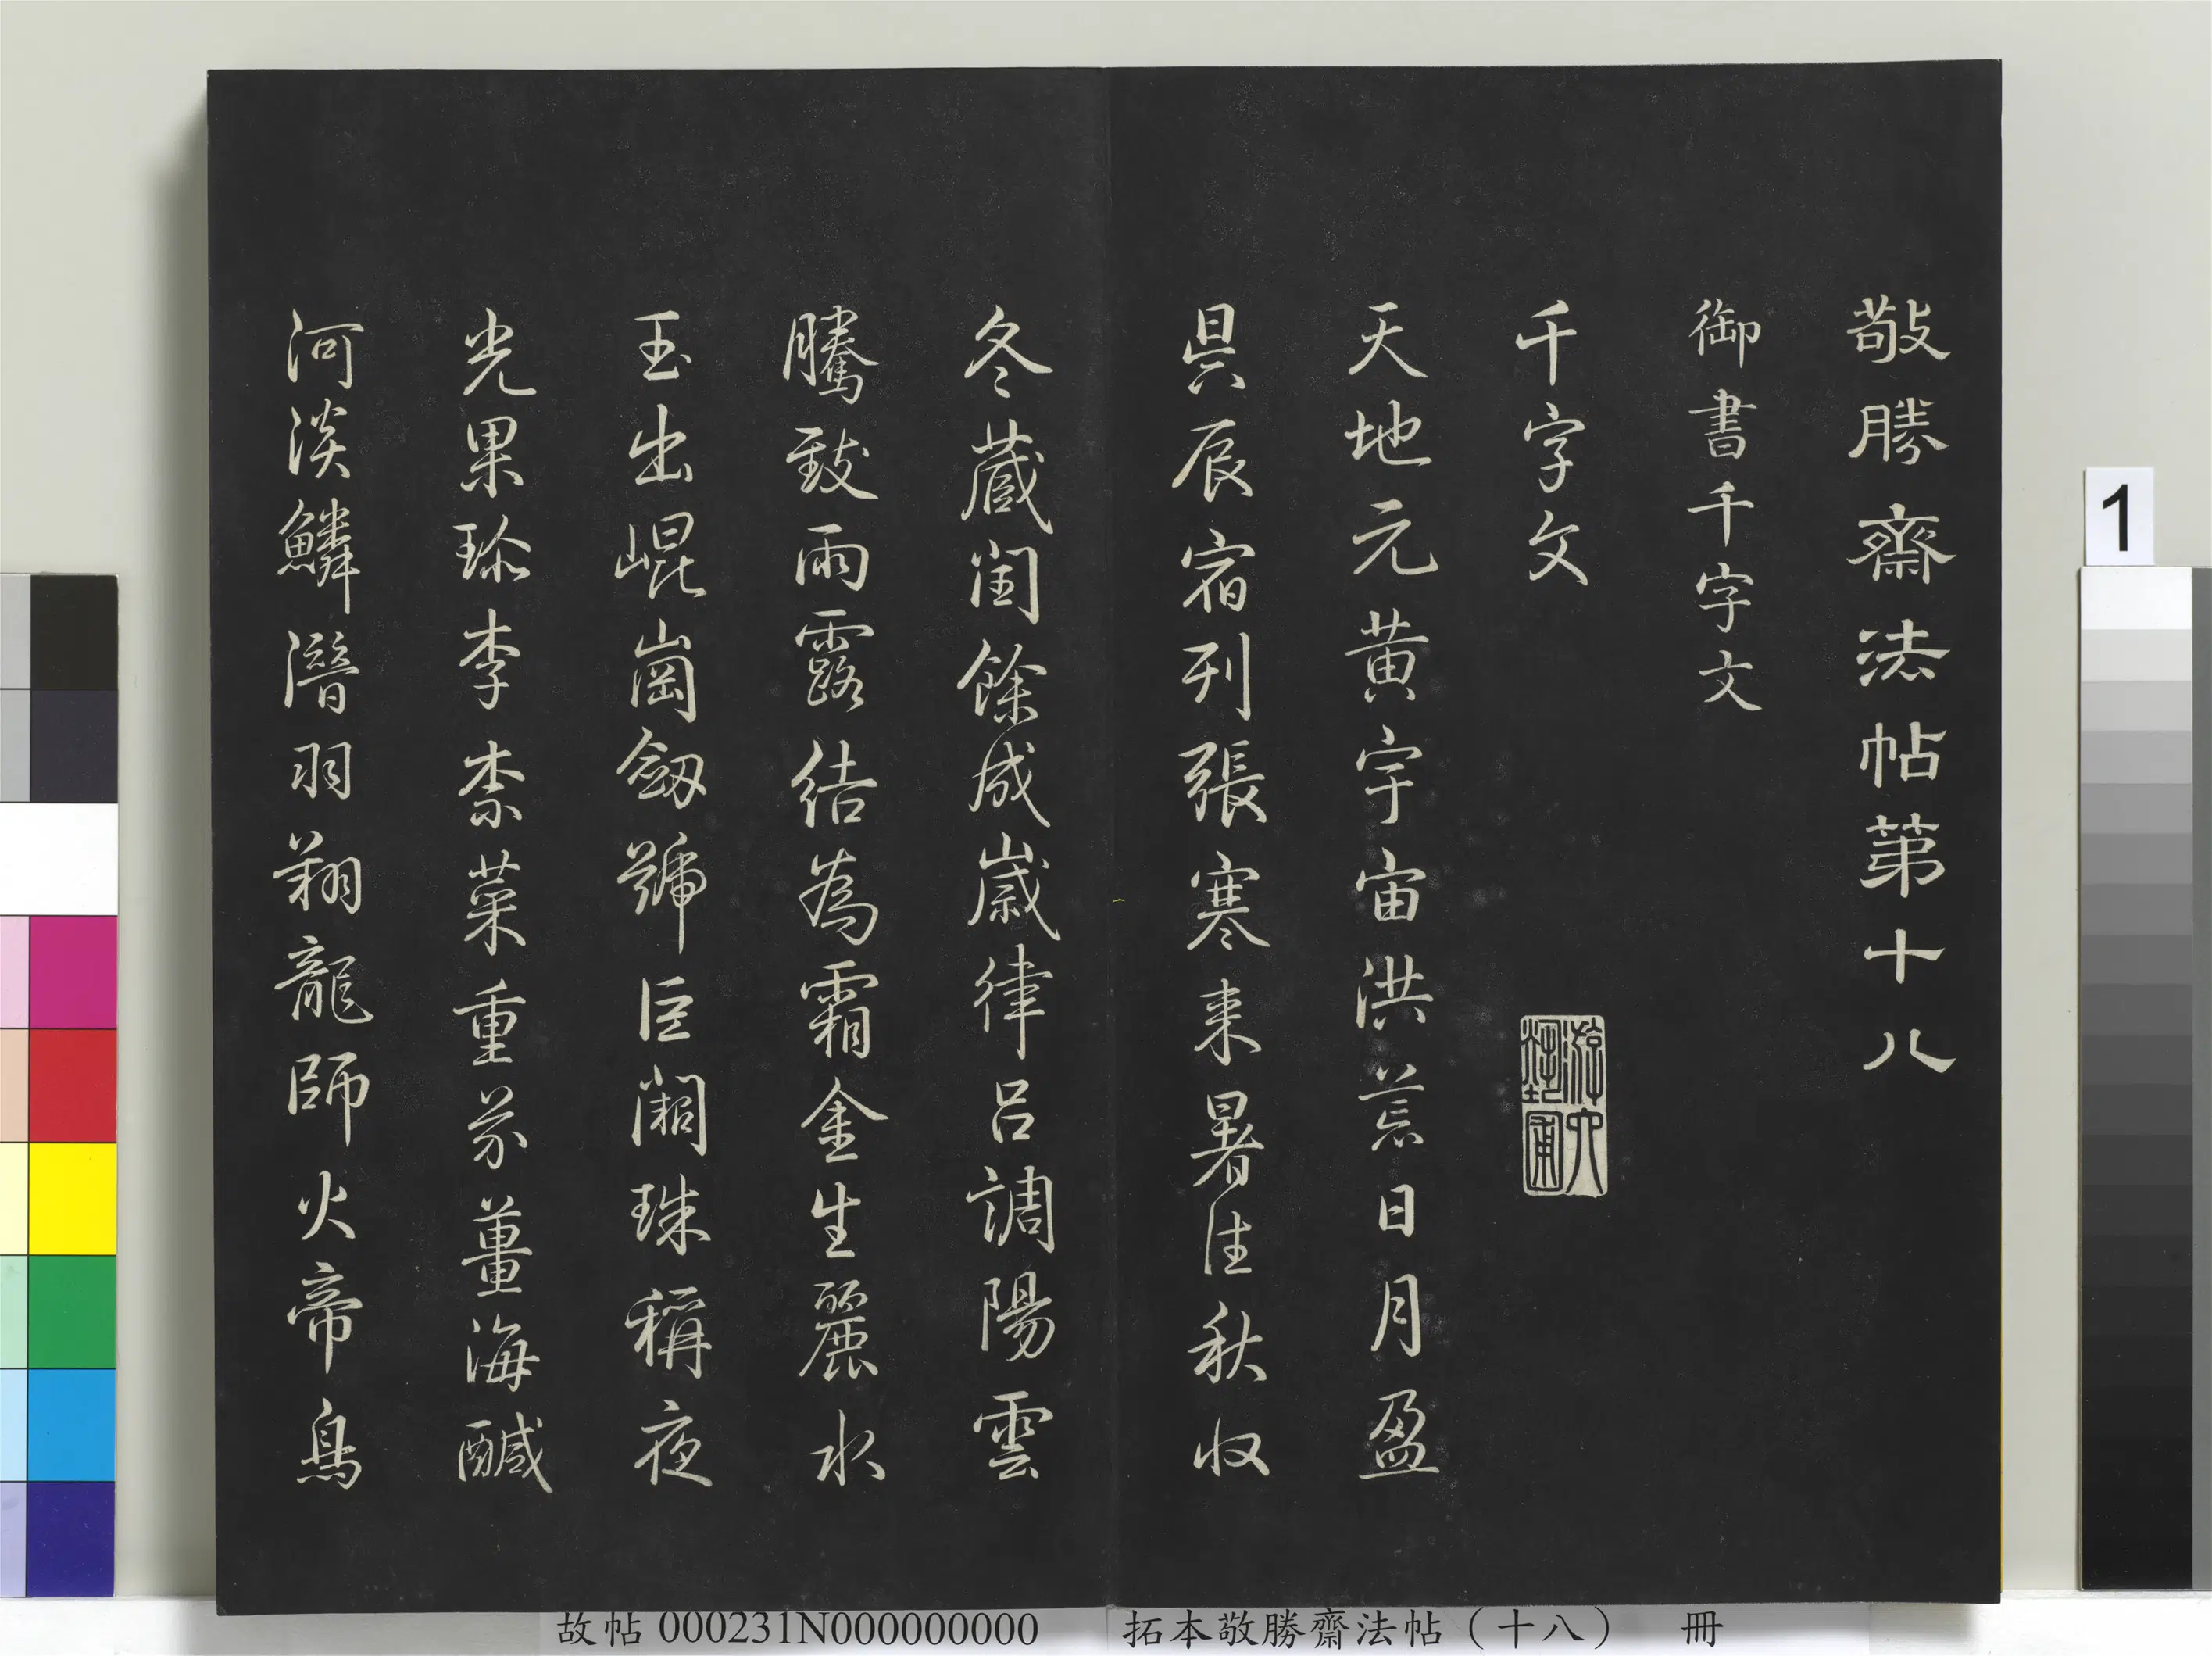 敬勝齋法帖第十八
御書千字文
千字文
游六藝圃
天地元黃宇宙洪荒日月盈
昃辰宿列張寒来暑往秋收
冬蔵閏餘成歲律呂調陽雲
騰致雨露結為霜金生麗水
玉出崐崗劔號巨闕珠稱夜
光果珎李柰菜重芥薑海醎
河淡鱗潛羽翔龍師火帝鳥
1
故帖 000231N000000000 拓本敬勝齋法帖（十八） 冊